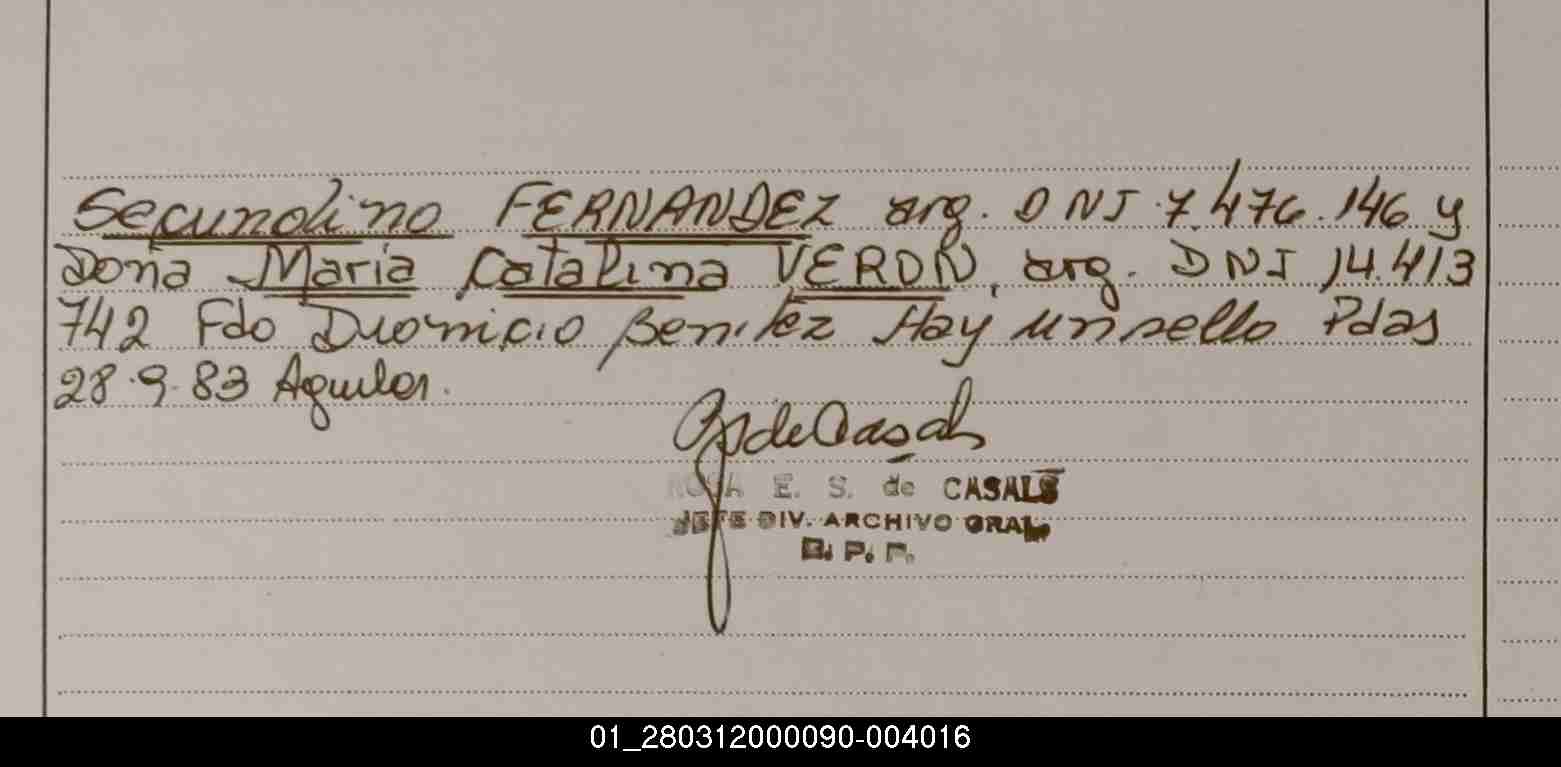 Secundino FERNANDEZ arg. DNI 7.476.146 y
Doña Maria Catalina VERON, arg. DNI 14.413
742 Fdo Dionicio Benitez Hay un sello Pdas
28.9.83 Aguilar.
ROSA E. S. de CASALS
JEFE DIV. ARCHIVO GRAL.
R. P. P.
01_280312000090-004016